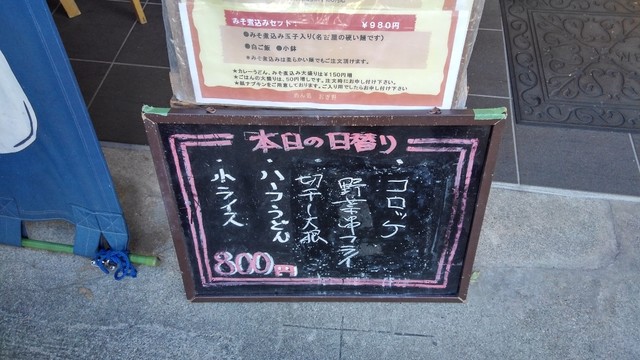 みそ煮込みセット： ￥９８０円
●みそ煮込み玉子入り(名古屋の硬い麺です)
●白ご飯 ●小鉢
※みそ煮込みは柔らかい麺でもご注文頂けます。
★カレーうどん、みそ煮込み大盛りは￥150円増
★ごはんの大盛りは、50円増しです。注文時にお申し付け下さい。
★紙ナプキンをご用意しております。ご入用でしたらお申し付け下さい
本日の日替り
・コロッケ
野菜串フライ
・切干し大根
・ハーフうどん
・小ライス
800円